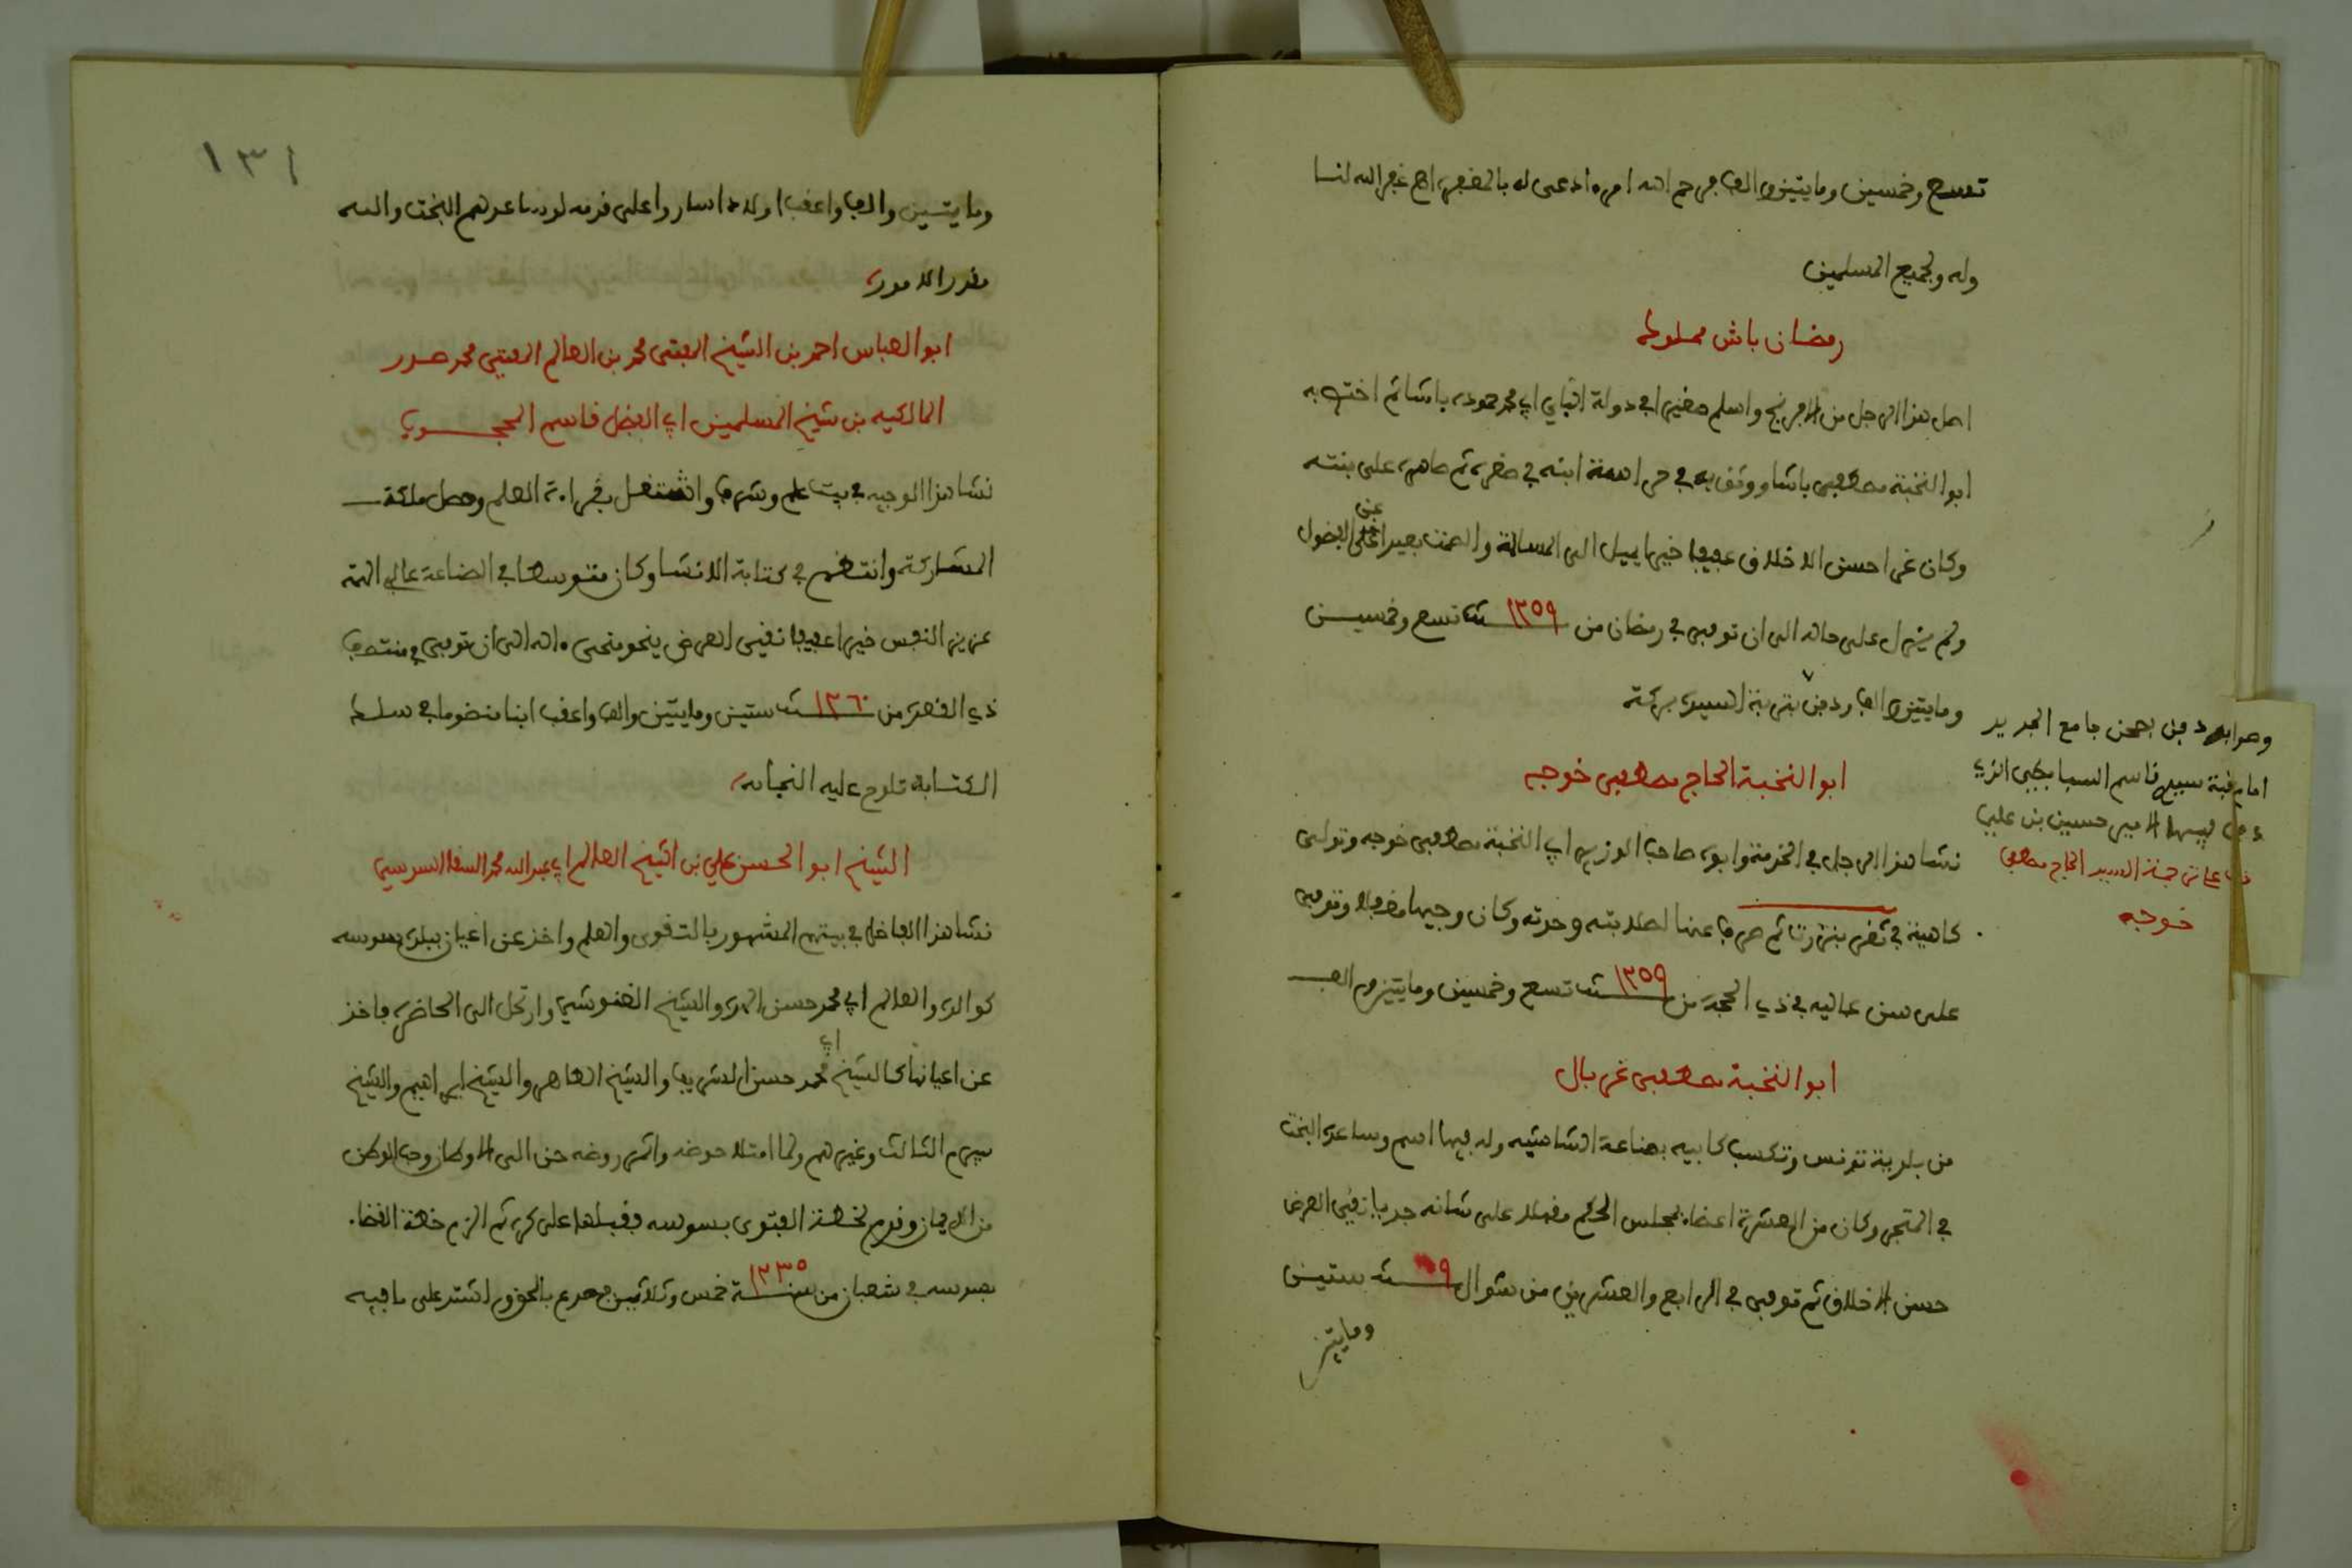 تسع وخمسين ومايتين والف فرحم الله امره ادعى له بالمغفرة اهـ غفر الله لنا
وله ولجميع المسلمين
رمضان باش مملوك
اصل هذا الرجل من الافرنج واسلم صغيرا في دولة الباي ابي محمد حموده باشا ثم اختص به
ابو النخبة مصطفى باشا ووثق به في حراسة ابنه في صغره ثم صاهره على بنته
وكان غرا حسن الاخلاق عفيفا خيرا يميل الى المسالمة والصمت بعيدا عن الفضول
ولم يزل على حاله الى ان توفي في رمضان من سنة ١٢٥٩ تسع وخمسين
ومايتين والف ودفن بتربة السيدة بركة
ابو النخبة الحاج مصطفى خوجه
نشا هذا الرجل في الخدمة وابوه صاحب الوزير ابي النخبة مصطفى خوجه وتولى
كاهية في ثغر بنزرت ثم صرف عنها لصلابته وحدته وكان وجيها فاضلا وتوفي
على سن عالية في ذي الحجة من سنة ١٢٥٩ تسع وخمسين ومايتين والف
ابو النخبة مصطفى غربال
من بلدية تونس وتكسب كابيه بصناعة الشاشيه وله فيها اسم وساعده البخت
في المتجر وكان من العشرة اعضاء مجلس الحكم مقبلا على شانه جديا نقي العرض
حسن الاخلاق ثم توفي في الرابع والعشرين من شوال سنة ستين
ومايتين
وصوابه دفن بصحن جامع الجديد
امام قبة سيدي قاسم السبابطي الذي
دفن فيها الامير حسين بن علي
خوجه
١٣١
ومايتين والف واعقب اولادا ساروا على قدمه لو ساعدهم البخت والله
مقدر الامور
ابو العباس احمد بن الشيخ المفتي محمد بن العالم المفتي محمد صدر
المالكيه بن شيخ المسلمين ابي الفضل قاسم المحجوب
نشا هذا الوجيه في بيت علم وشرف واشتغل بقراءة العلم وحصل ملكة
المشاركة وانتظم في كتابة الانشا وكان متوسطا في الصناعة عالي الهمة
عزيز النفس خيرا عفيفا نقي العرض ينحو منحى واله الى ان توفي في منتصف
ذي القعدة من سنة ١٢٦٠ ستين ومايتين والف واعقب ابنا منضوما في سلك
الكتابة تلوح عليه النجابة
الشيخ ابو الحسن علي بن الشيخ العالم ابي عبد الله محمد السقا السوسي
نشا هذا الفاضل في بيتهم المشهور بالتقوى والعلم واخذ عن اعيان ببلده سوسه
كوالده والعالم ابي محمد حسن الهدة والشيخ الغنوشي وارتحل الى الحاضرة فاخذ
عن اعيانها كالشيخ ابي محمد حسن الشريف والشيخ الطاهر والشيخ ابراهيم والشيخ
بيرم الثالث وغيرهم ولما امتلا حوضه واثمر روضه حن الى الاوطان وحب الوطن
من الايمان وقدم لخطة الفتوى بسوسه فقبلها على كره ثم الزم خطة القضاء
بسوسه في شعبان من سنة ١٢٣٥ خمس وثلاثين فصدع بالحق واشتد على ما فيه